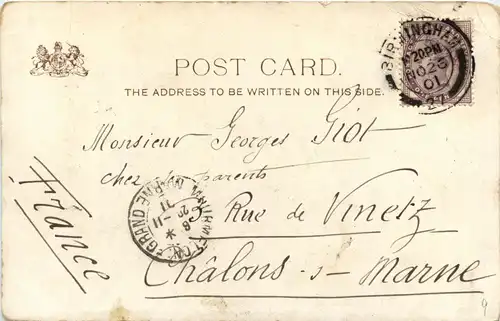 POST CARD.
THE ADDRESS TO BE WRITTEN ON THIS SIDE.
BIRMINGHAM
20PM
NO 25
01
27
Monsieur Georges Giot
chez ses parents
Rue de Vinetz
Châlons s- Marne
France
GRAND MARNE
11
01
9